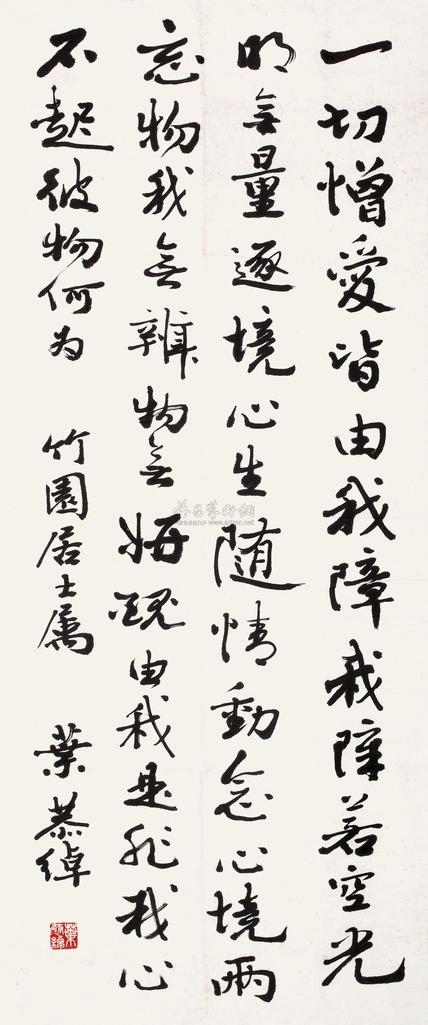 一切憎愛皆由我障我障若空光
明無量逐境心生随情動念心境兩
忘物我無辨物無妍醜由我是非我心
不起彼物何為 竹園居士属 葉恭綽